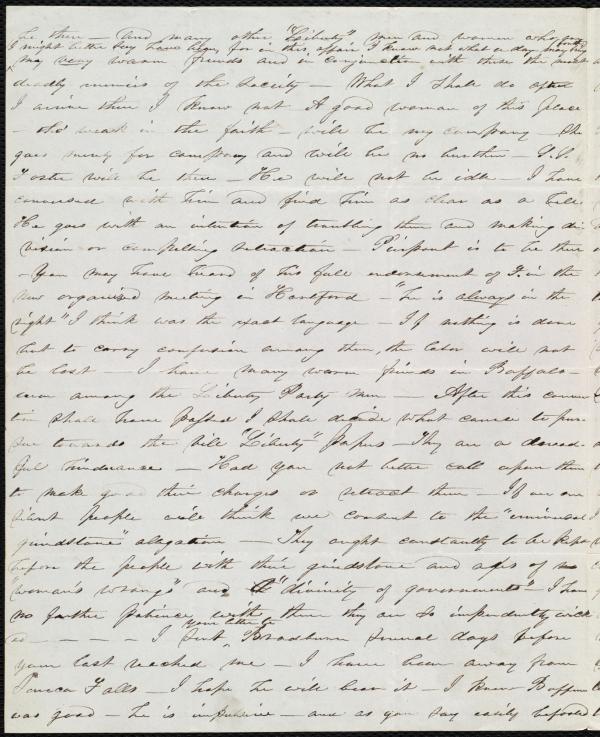 be there — and many other "Liberty" men and women who are
I might better say have been, for in this affair I know not what a day may bring forth
may very warm friends and in conjunction with these the most
deadly enemies of the Society — What I shall do after
I arrive there I know not A good woman of this place
— tho' weak in the faith — will be my company — She
goes merely for company and will be no burthen — S.S.
Foster will be there — He will not be idle — I have
conversed with him and find him as clear as a bell
He goes with an intention of troubling them and making di
vision or compelling retraction — Pierpont is to be there
— You may have heard of his full endorsement of G. in the
new organized meeting in Hartford — "he is always in the
right" I think was the exact language — If nothing is done
but to carry confusion among them, the labor will not
be lost — I have many warm friends in Buffalo —
even among the Liberty Party men — After this conven
tion shall have passed I shall decide what course to pur
sue towards the vile "Liberty" papers — They are a dread
ful hinderance — Had you not better call upon them
to make good their charges or retract them — If we are
silent people will think we consent to the "criminal
grindstone" allegation — They ought constantly to be kept
before the people with their grindstone and apes of
"woman's wrongs" and "divinity of governments" — I have
no farther patience with them they are so impudently wick
ed — — — — I sent your letter to Bradburn several days before
your last reached me — I have been away from
Seneca Falls — I hope he will bear it — I know Boffum
was good — he is — and as you say easily